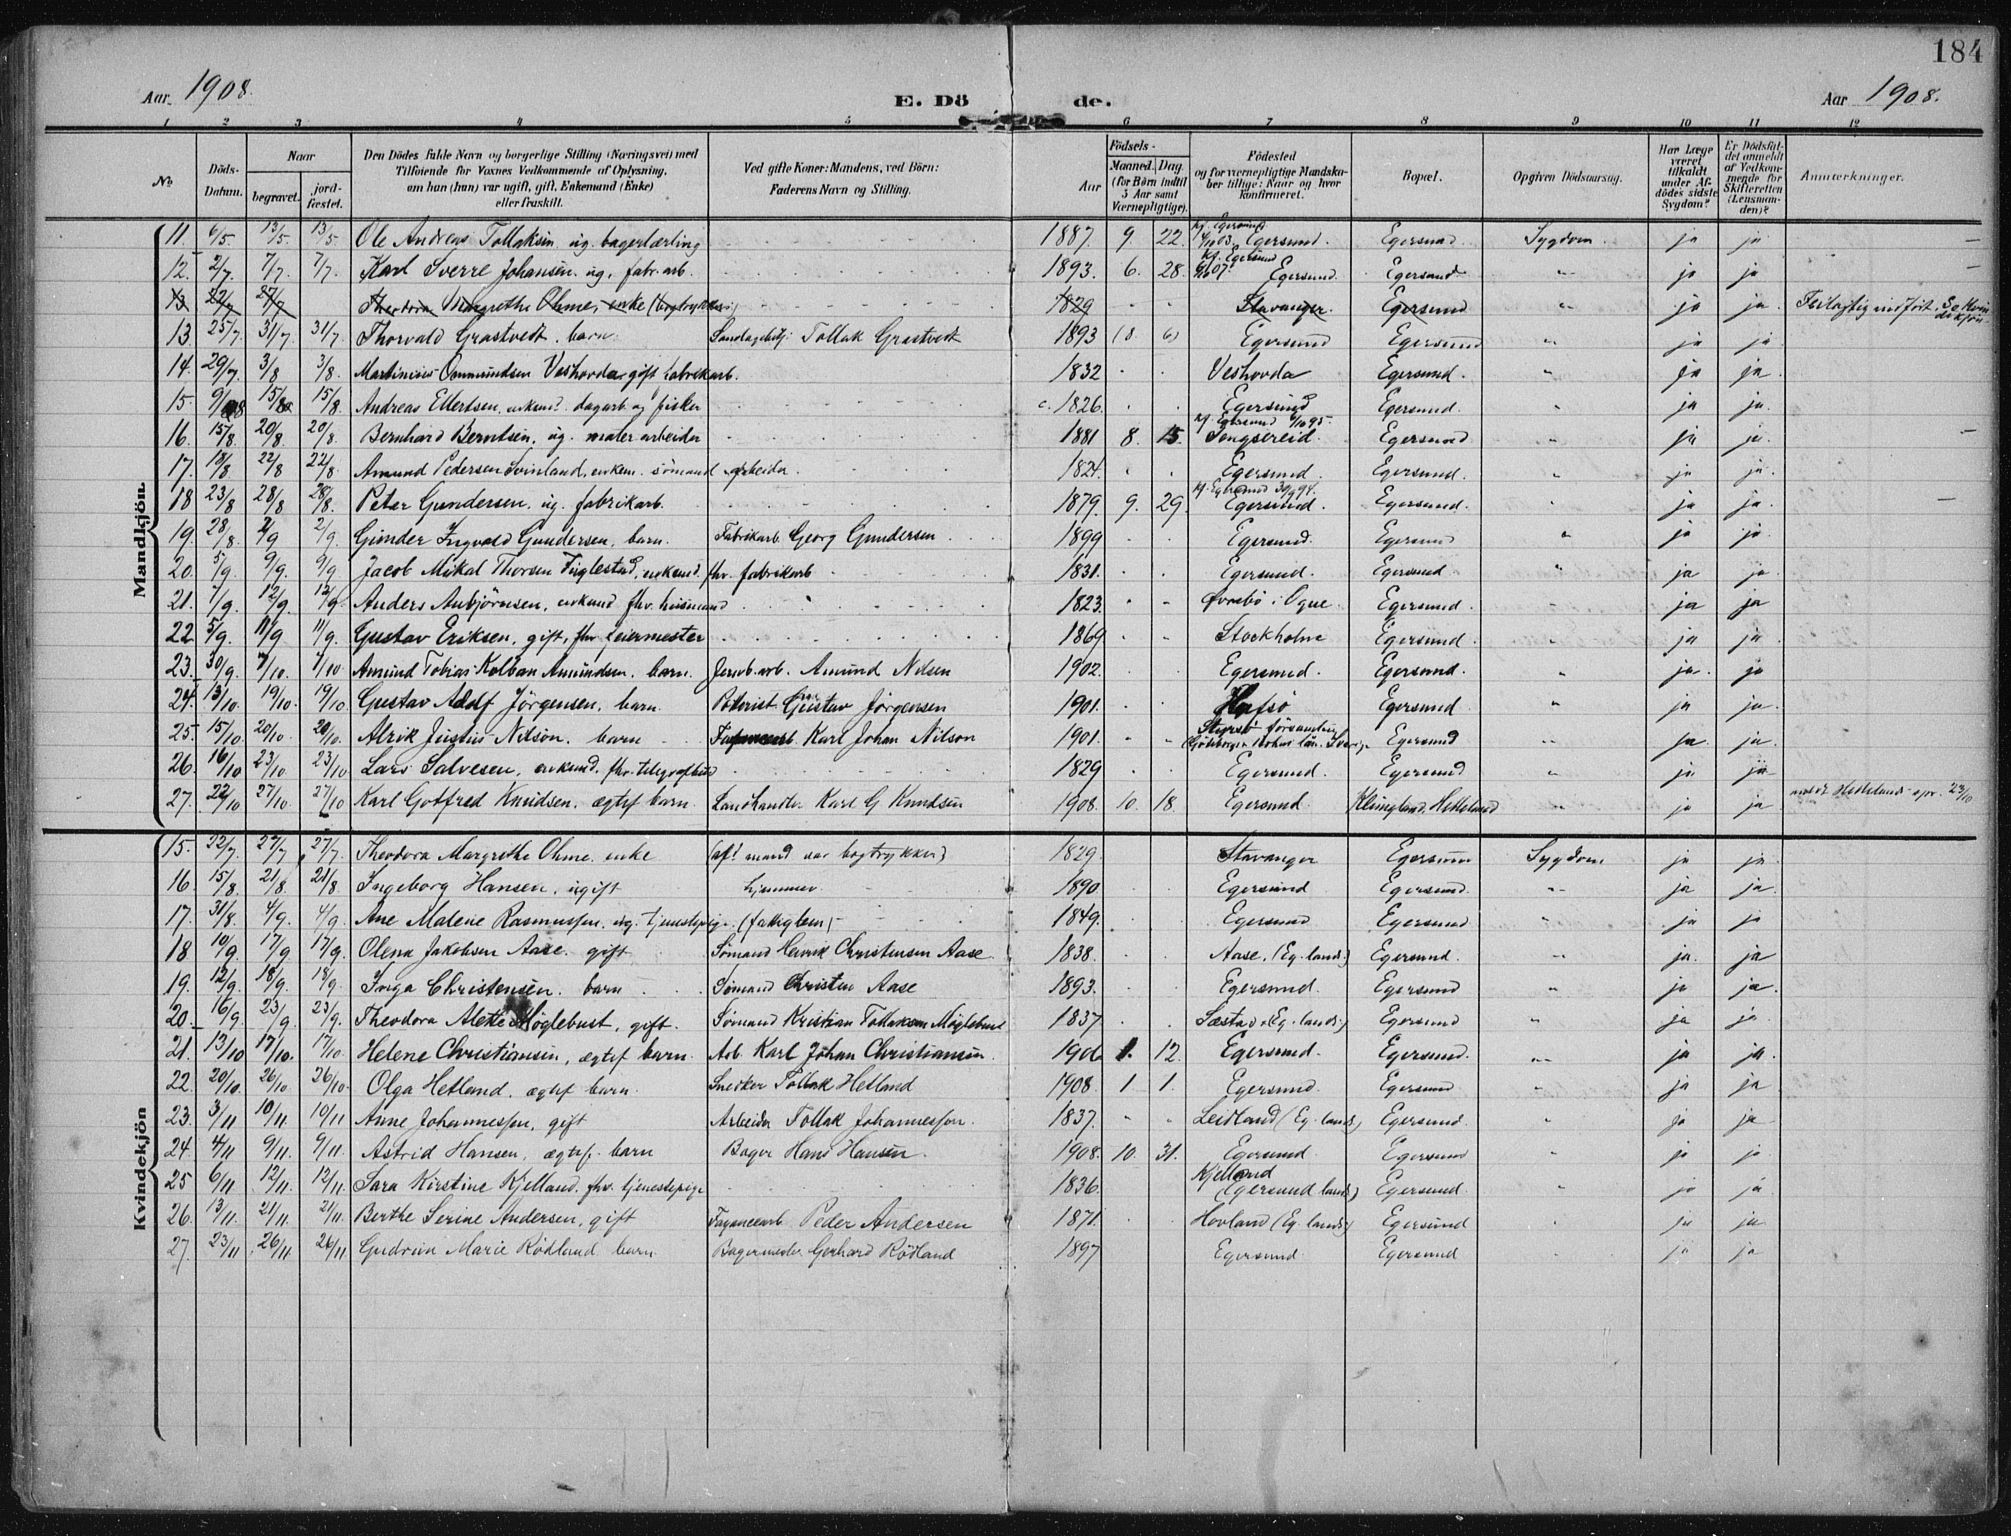 184
Aar 1908. E. Dö de. Aar 1908.
1 2 3 4 5 6 7 8 9 10 11 12
No Döds-Datum. Naar begravet. jordfæstet. Den Dödes fulde Navn og borgerlige Stilling (Næringsvei) med Tilföiende for Voxnes Vedkommende af Oplysning, om han (hun) var ugift, gift, Enkemand (Enke) eller fraskilt. Ved gifte Koner: Mandens, ved Börn: Faderens Navn og Stilling. Födsels- Aar Maaned. Dag. (for Börn indtil 3 Aar samt Værnepligtige). Födested og for værnepligtige Mandskaber tillige: Naar og hvor konfirmeret. Bopæl. Opgiven Dödsaarsag. Har Læge været tilkaldt under Afdödes sidste Sygdom? Er Dödsfaldet anmeldt af Vedkommende for Skifteretten (Lensmanden)? Anmærkninger.
Mandkjön.
11. 6/5 13/5 13/5 Ole Andreas Tollaksen, ug. bagerlærling 1887 9 22. Kf. Egersund 4/10 03. Egersund. Egersund Sygdom ja ja –
12. 2/7 7/7. 7/7. Karl Sverre Johansen. ug. fabr. arb. 1893. 6. 28. Kf. Egersund 07. Egersund Egersund " ja ja –
13 22/7 27/7 Theodora Margrethe Ohme, enke (bogtrykker) 1829 Stavanger Egersund " ja ja Feilagtig indført. Se Kvindekjøn
13 25/7 31/7 31/7 Thorvald Grastvedt. barn Tollak Grastvedt 1893 (8 6) Egersund Egersund " ja ja
14. 29/7. 3/8 3/8. Martinius Ommundsen Veshovda gift fabrikarb. 1832 Veshovda Egersund. " ja ja.
15. 9/8 15/8 15/8. Andreas Ellertsen, enkemd. dagarb. og fisker c. 1826. Egersund Egersund. " ja ja.
16. 15/8. 20/8 20/8. Bernhard Berntsen, ug. maler arbeider 1881 8. 15. Kf. Egersund 95. Sengsereid. Egersund " ja ja. –
17. 18/8 22/8 22/8. Amund Pedersen Svinland, enkem. sømand arbeider. 1824. Egersund. Egersund. " ja ja.
18 23/8 28/8 28/8. Peter Gundersen, ug. fabrikarb. 1879. 9. 29. Kf. Egersund 30/9 94. Egersund. Egersund. " ja ja –
19. 28/8. 2/9 2/9. Gunder Ingvald Gundersen, barn. Fabrikarb. Georg Gundersen 1899 Egersund. Egersund " ja ja
20. 5/9. 9/9. 9/9 Jacob Mikal Thorsen Fuglestad, enkemd. fhv. fabrikarb 1831. Egersund. Egersund " ja ja.
21. 7/9. 12/9. 12/9. Anders Anbjørnsen, enkemd fhv. husmand 1823. i Ogne. Egersund. " ja ja
22 5/9. 11/9 11/9. Gustav Eriksen, gift, fhv. feiermester 1869 Stockholm Egersund. " ja ja.
23. 30/9. 7/10. 7/10 Amund Tobias Kolban Amundsen, barn. Jernb. arb. Amund Nilsen 1902. Egersund. Egersund. " ja. ja
24. 13/10 19/10. 19/10. Gustav Adolf Jörgensen, barn. Gustav Jørgensen 1901. Hafsö Egersund " ja ja.
25. 15/10 20/10. 20/10. Alrik Justus Nilson. barn Karl Johan Nilson 1901. Sverige Egersund " ja. ja.
26. 16/10 23/10 23/10 Lars Salvesen, enkemd. fhv. telegrafbud 1829 Egersund. Egersund " ja ja
27. 22/10 27/10 27/10 Karl Gotfred Knudsen. ægtef barn Landhandler Karl G Knudsen 1908. 10. 18. Egersund. Klungland, Hetland " ja ja 23/10
Kvindekjön
15. 22/7. 27/7 27/7. Theodora Margrethe Ohme. enke (afd. mand var bogtrykker) 1829. Stavanger Egersund Sygdom ja ja.
16. 15/8. 21/8. 21/8. Ingeborg Hansen, ugift hjemmev. 1890 Egersund Egersund. " ja ja.
17. 31/8. 4/9. 4/9. Ane Malene Rasmussen, ug. tjenestepige. (fattiglem) 1849. Egersund Egersund " ja ja
18 10/9. 17/9 17/9. Olena Jakobsen Aase. gift Sømand Henrik Christensen Aase. 1838. Aase. (Eg. lands.) Egersund. " ja. ja
19. 12/9. 18/9. 18/9. Inga Christensen. barn Sømand Christen Aase 1893. Egersund. Egersund " ja ja.
20. 16/9. 23/9. 23/9. Theodora Alette Møglebust, gift. Sømand Kristian Tollaksen Møglebust 1837 Sæstad. (Eg. lands.) Egersund " ja ja.
21. 13/10 17/10. 17/10. Helene Christiansen, ægtef barn. Arb. Karl Johan Christiansen. 1906 1. 12. Egersund. Egersund. " ja ja.
22. 20/10. 26/10 26/10. Olga Hetland. ægtef barn. Snedker Tollak Hetland 1908. 1. 1. Egersund. Egersund " ja ja
23. 3/11 10/11. 10/11 Anne Johannessen, gift Arbeider Tollak Johannessen. 1837. Leidland (Eg. lands.) Egersund. " ja ja
24. 4/11 9/11. 9/11. Astrid Hansen, ægtef. barn Bager Hans Hansen. 1908. 10. 31. Egersund. Egersund " ja ja
25 6/11 12/11. 12/11. Sara Kirstine Kjelland. fhv. tjenestepige 1836. Kjelland (Egersund lands.) Egersund. " ja ja
26. 13/11. 21/11. 21/11. Berthe Serine Andersen, gift Fayancearb Peder Andersen 1871. Hovland (Eg. lands.) Egersund " ja ja
27. 23/11 26/11 26/11. Gudrun Marie Rödland barn Bagermester Gerhard Rödland 1897 Egersund. Egersund ja ja